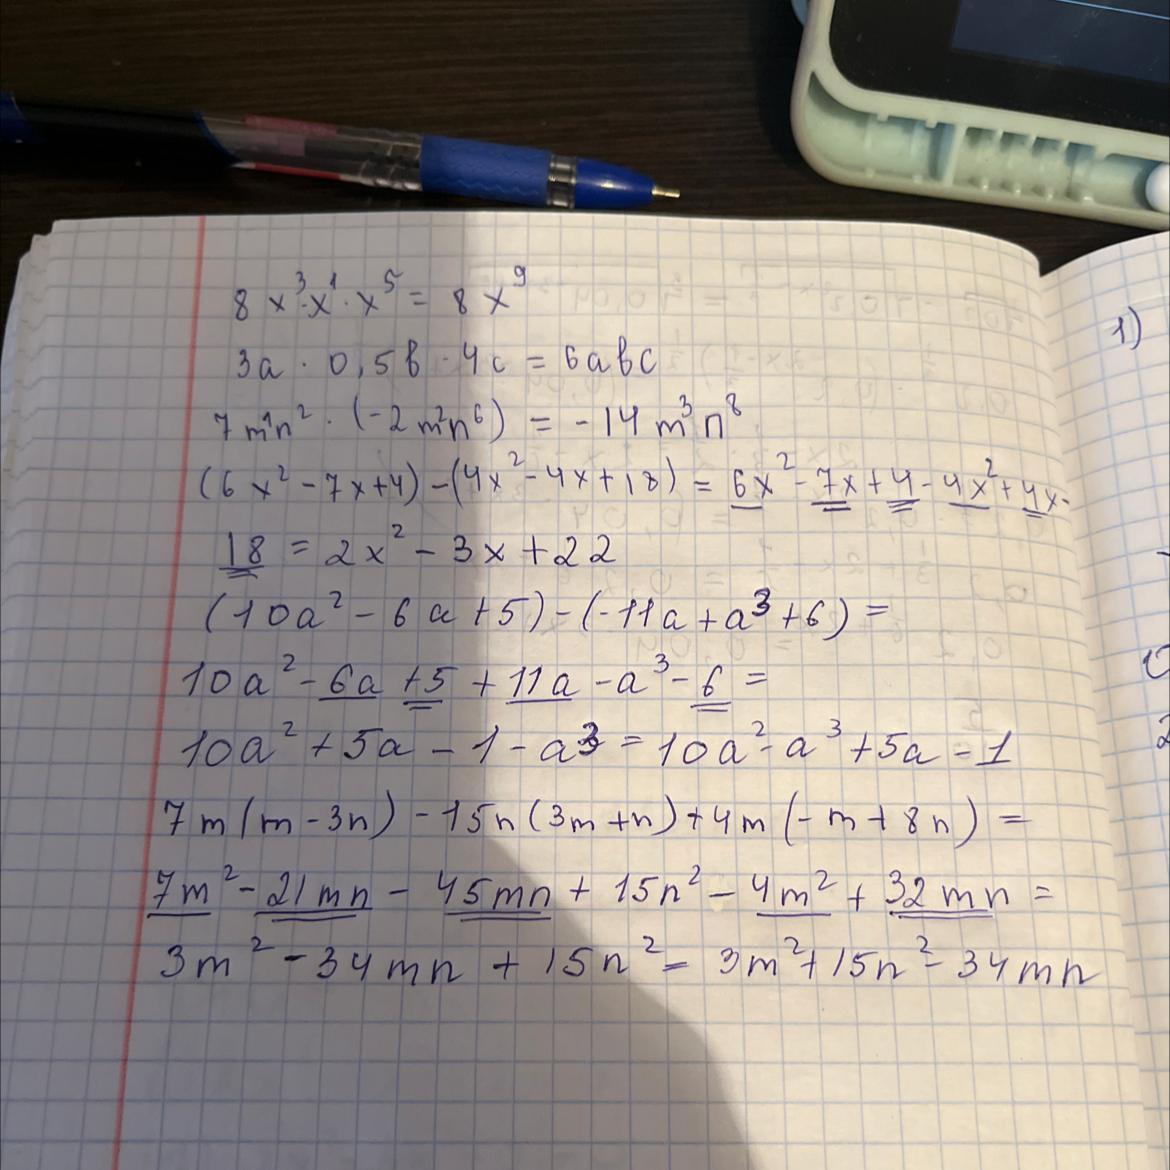 8x³·x¹·x⁵ = 8x⁹
3a · 0,5b · 4c = 6abc
7m¹n² · (-2m²n⁶) = -14m³n⁸
(6x² - 7x + 4) - (4x² - 4x + 18) = 6x² - 7x + 4 - 4x² + 4x -
18 = 2x² - 3x + 22
(10a² - 6a + 5) - (-11a + a³ + 6) =
10a² - 6a + 5 + 11a - a³ - 6 =
10a² + 5a - 1 - a³ = 10a² - a³ + 5a - 1
7m(m - 3n) - 15n(3m + n) + 4m(-m + 8n) =
7m² - 21mn - 45mn + 15n² - 4m² + 32mn =
3m² - 34mn + 15n² = 3m² + 15n² - 34mn
1)